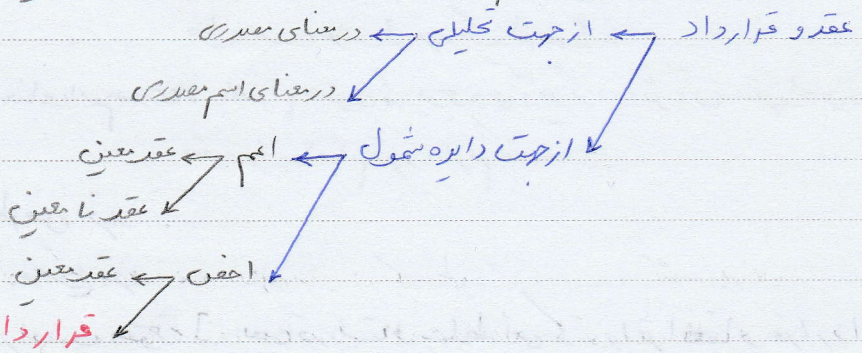 عقد و قرارداد ← از جهت تحلیلی ← در معنای مصدری
در معنای اسم مصدری
از جهت دایره شمول ← اعم ← عقد معین
عقد نامعین
اخص ← عقد معین
قراردا